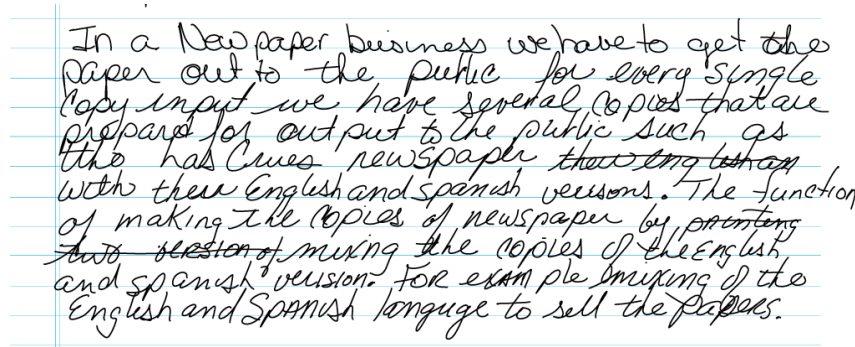 In a Newpaper buisness we have to get the
paper out to the public for every single
copy input we have several copies that are
prepared for out put to the public such as
the has Crues newspaper
with their English and Spanish versions. The function
of making the copies of newspaper by printing
two version of mixing the copies of the English
and spanish verision. For example mixing of the
English and Spanish languge to sell the papers.